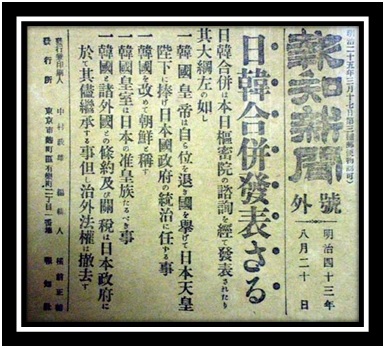 報知新聞
號外
明治四十三年
八月二十日
日韓合併發表さる
日韓合併は本日樞密院の諮詢を經て發表されたり
其大綱左の如し
一韓國皇帝は自ら位を退き國を擧げて日本天皇
陛下に捧げ日本國政府の統治に任ずる事
一韓國を改めて朝鮮と稱す
一韓國皇室は日本の准皇族たるべき事
一韓國と諸外國との條約及び關税は日本政府に
於て其儘繼承する事但し治外法權は撤去す
發行兼印刷人
編輯人
發行所 東京市麴町區有樂町二丁目一番地 報知社